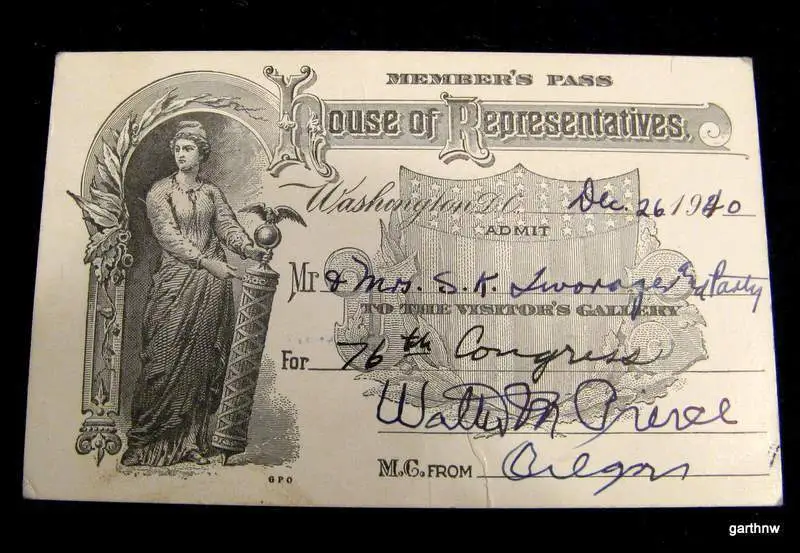 MEMBER'S PASS
House of Representatives.
Washington D.C. Dec. 26 1940
ADMIT
Mr & Mrs. S.K. and Party
TO THE VISITOR'S GALLERY
For 76th Congress
Walter M Pierce
M.C. FROM Oregon
GPO
garthnw